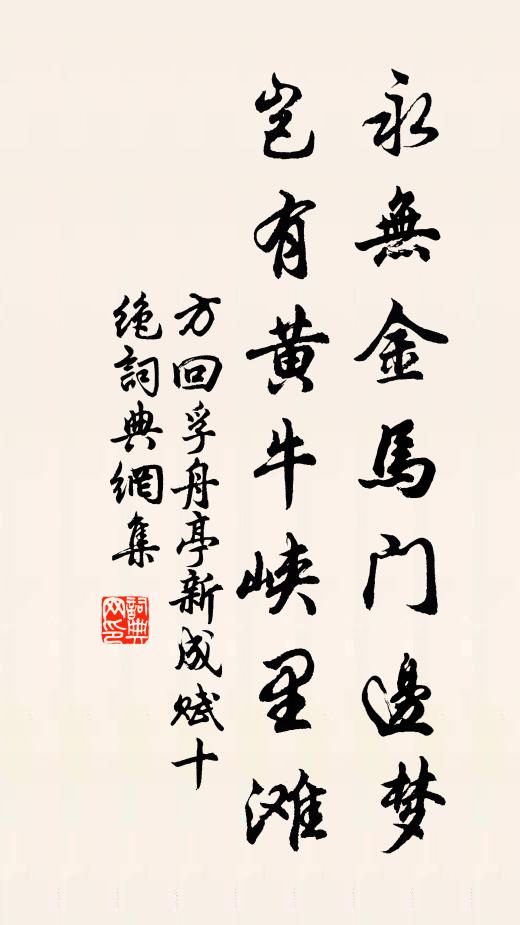 永無金馬门邊梦
岂有黄牛峡里滩
方回孚舟亭新成赋十
绝詞典網集
詞典网印